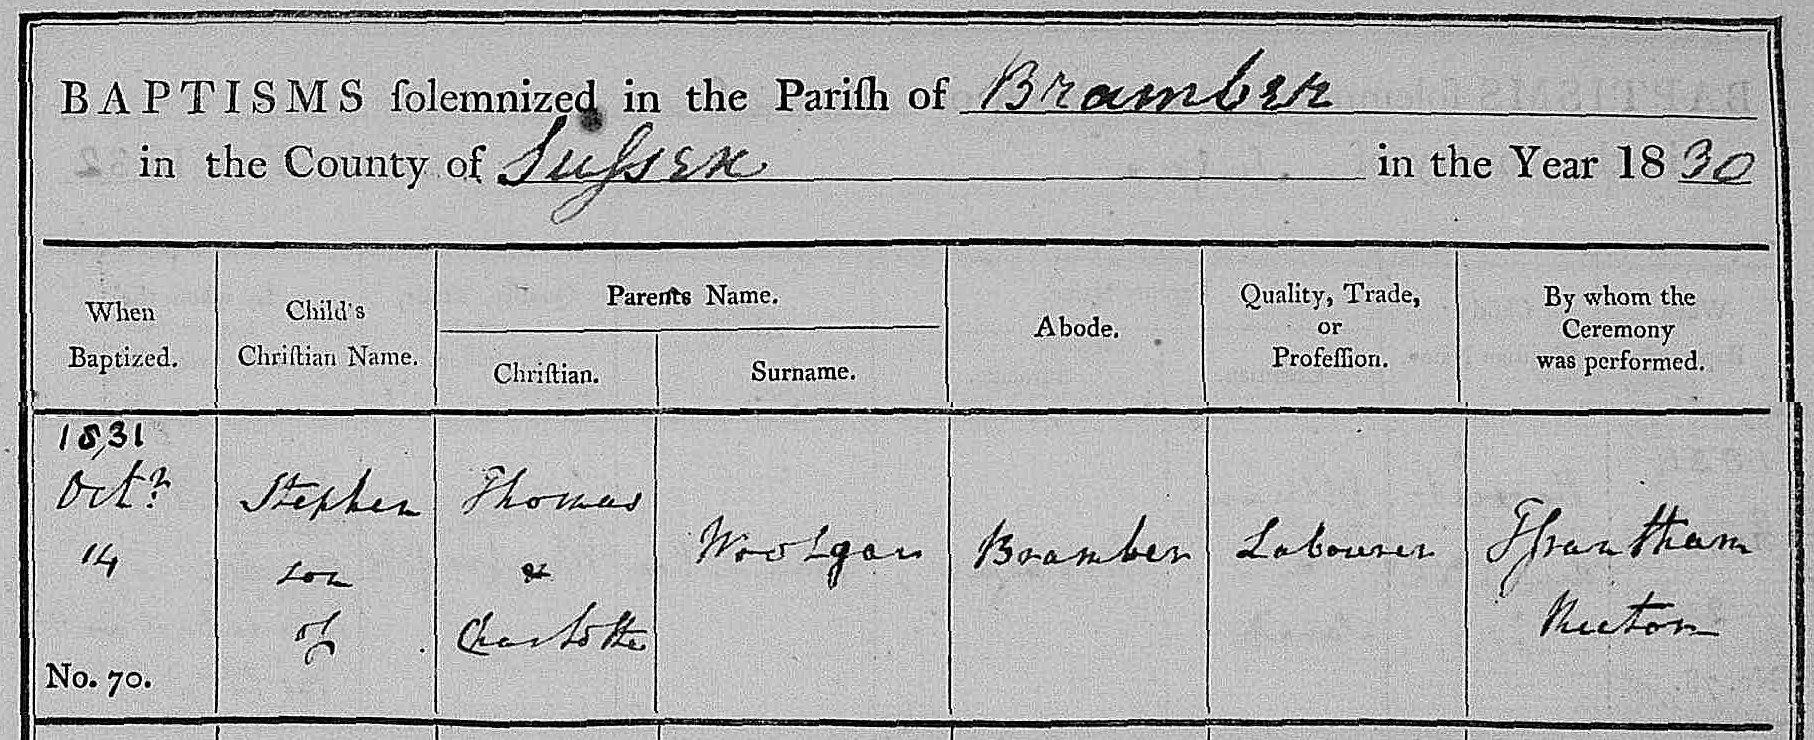 BAPTISMS ſolemnized in the Pariſh of Bramber
in the County of Suſsex in the Year 1830
When
Baptized.
Child's
Chriſtian Name.
Parents Name.
Chriſtian.
Surname.
Abode.
Quality, Trade,
or
Profeſſion.
By whom the
Ceremony
was performed.
1831
Octr
14
No. 70.
Stephen
son
of
Thomas
&
Charlotte
Woolgar
Bramber
Labourer
Grantham
Rector